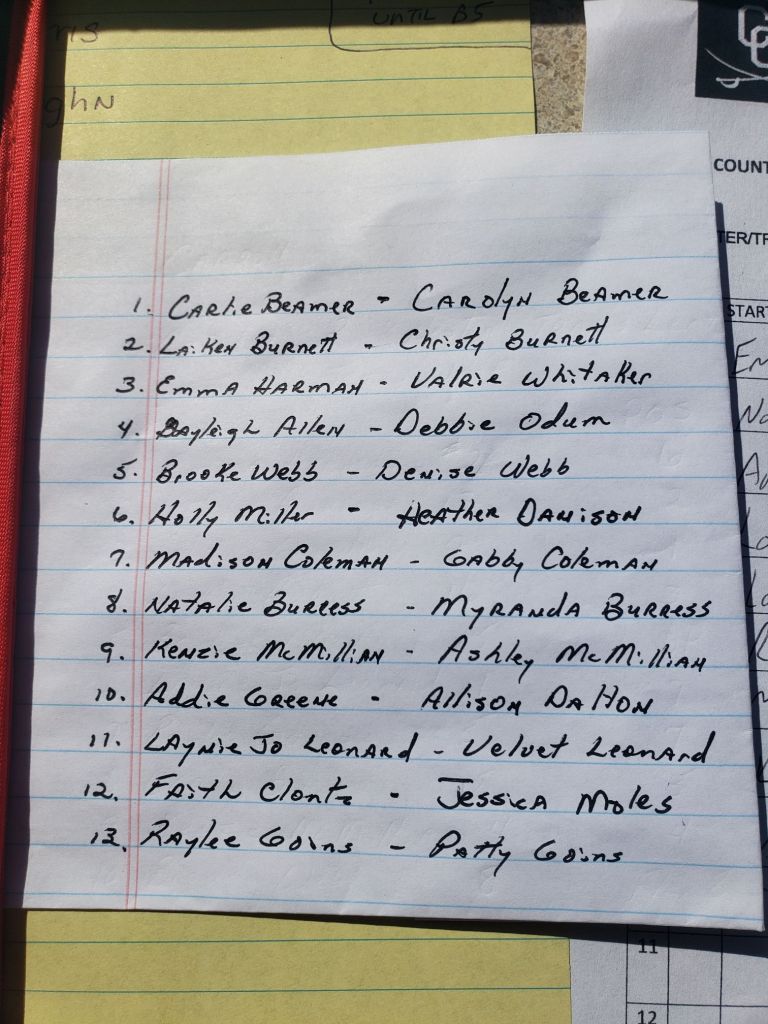 UNTIL B5
ghN
COUNT
TER/TR
START
1. Carlie Beamer - Carolyn Beamer
2. Laiken Burnett - Christy Burnett
3. Emma Harman - Valrie Whitaker
4. Bayleigh Allen - Debbie Odum
5. Brooke Webb - Denise Webb
6. Holly Miller - Heather Davison
7. Madison Coleman - Gabby Coleman
8. Natalie Burress - Myranda Burress
9. Kenzie McMillian - Ashley McMillian
10. Addie Greene - Allison Dalton
11. Laynie Jo Leonard - Velvet Leonard
12. Faith Clontz - Jessica Moles
13. Raylee Goins - Patty Goins
11
12